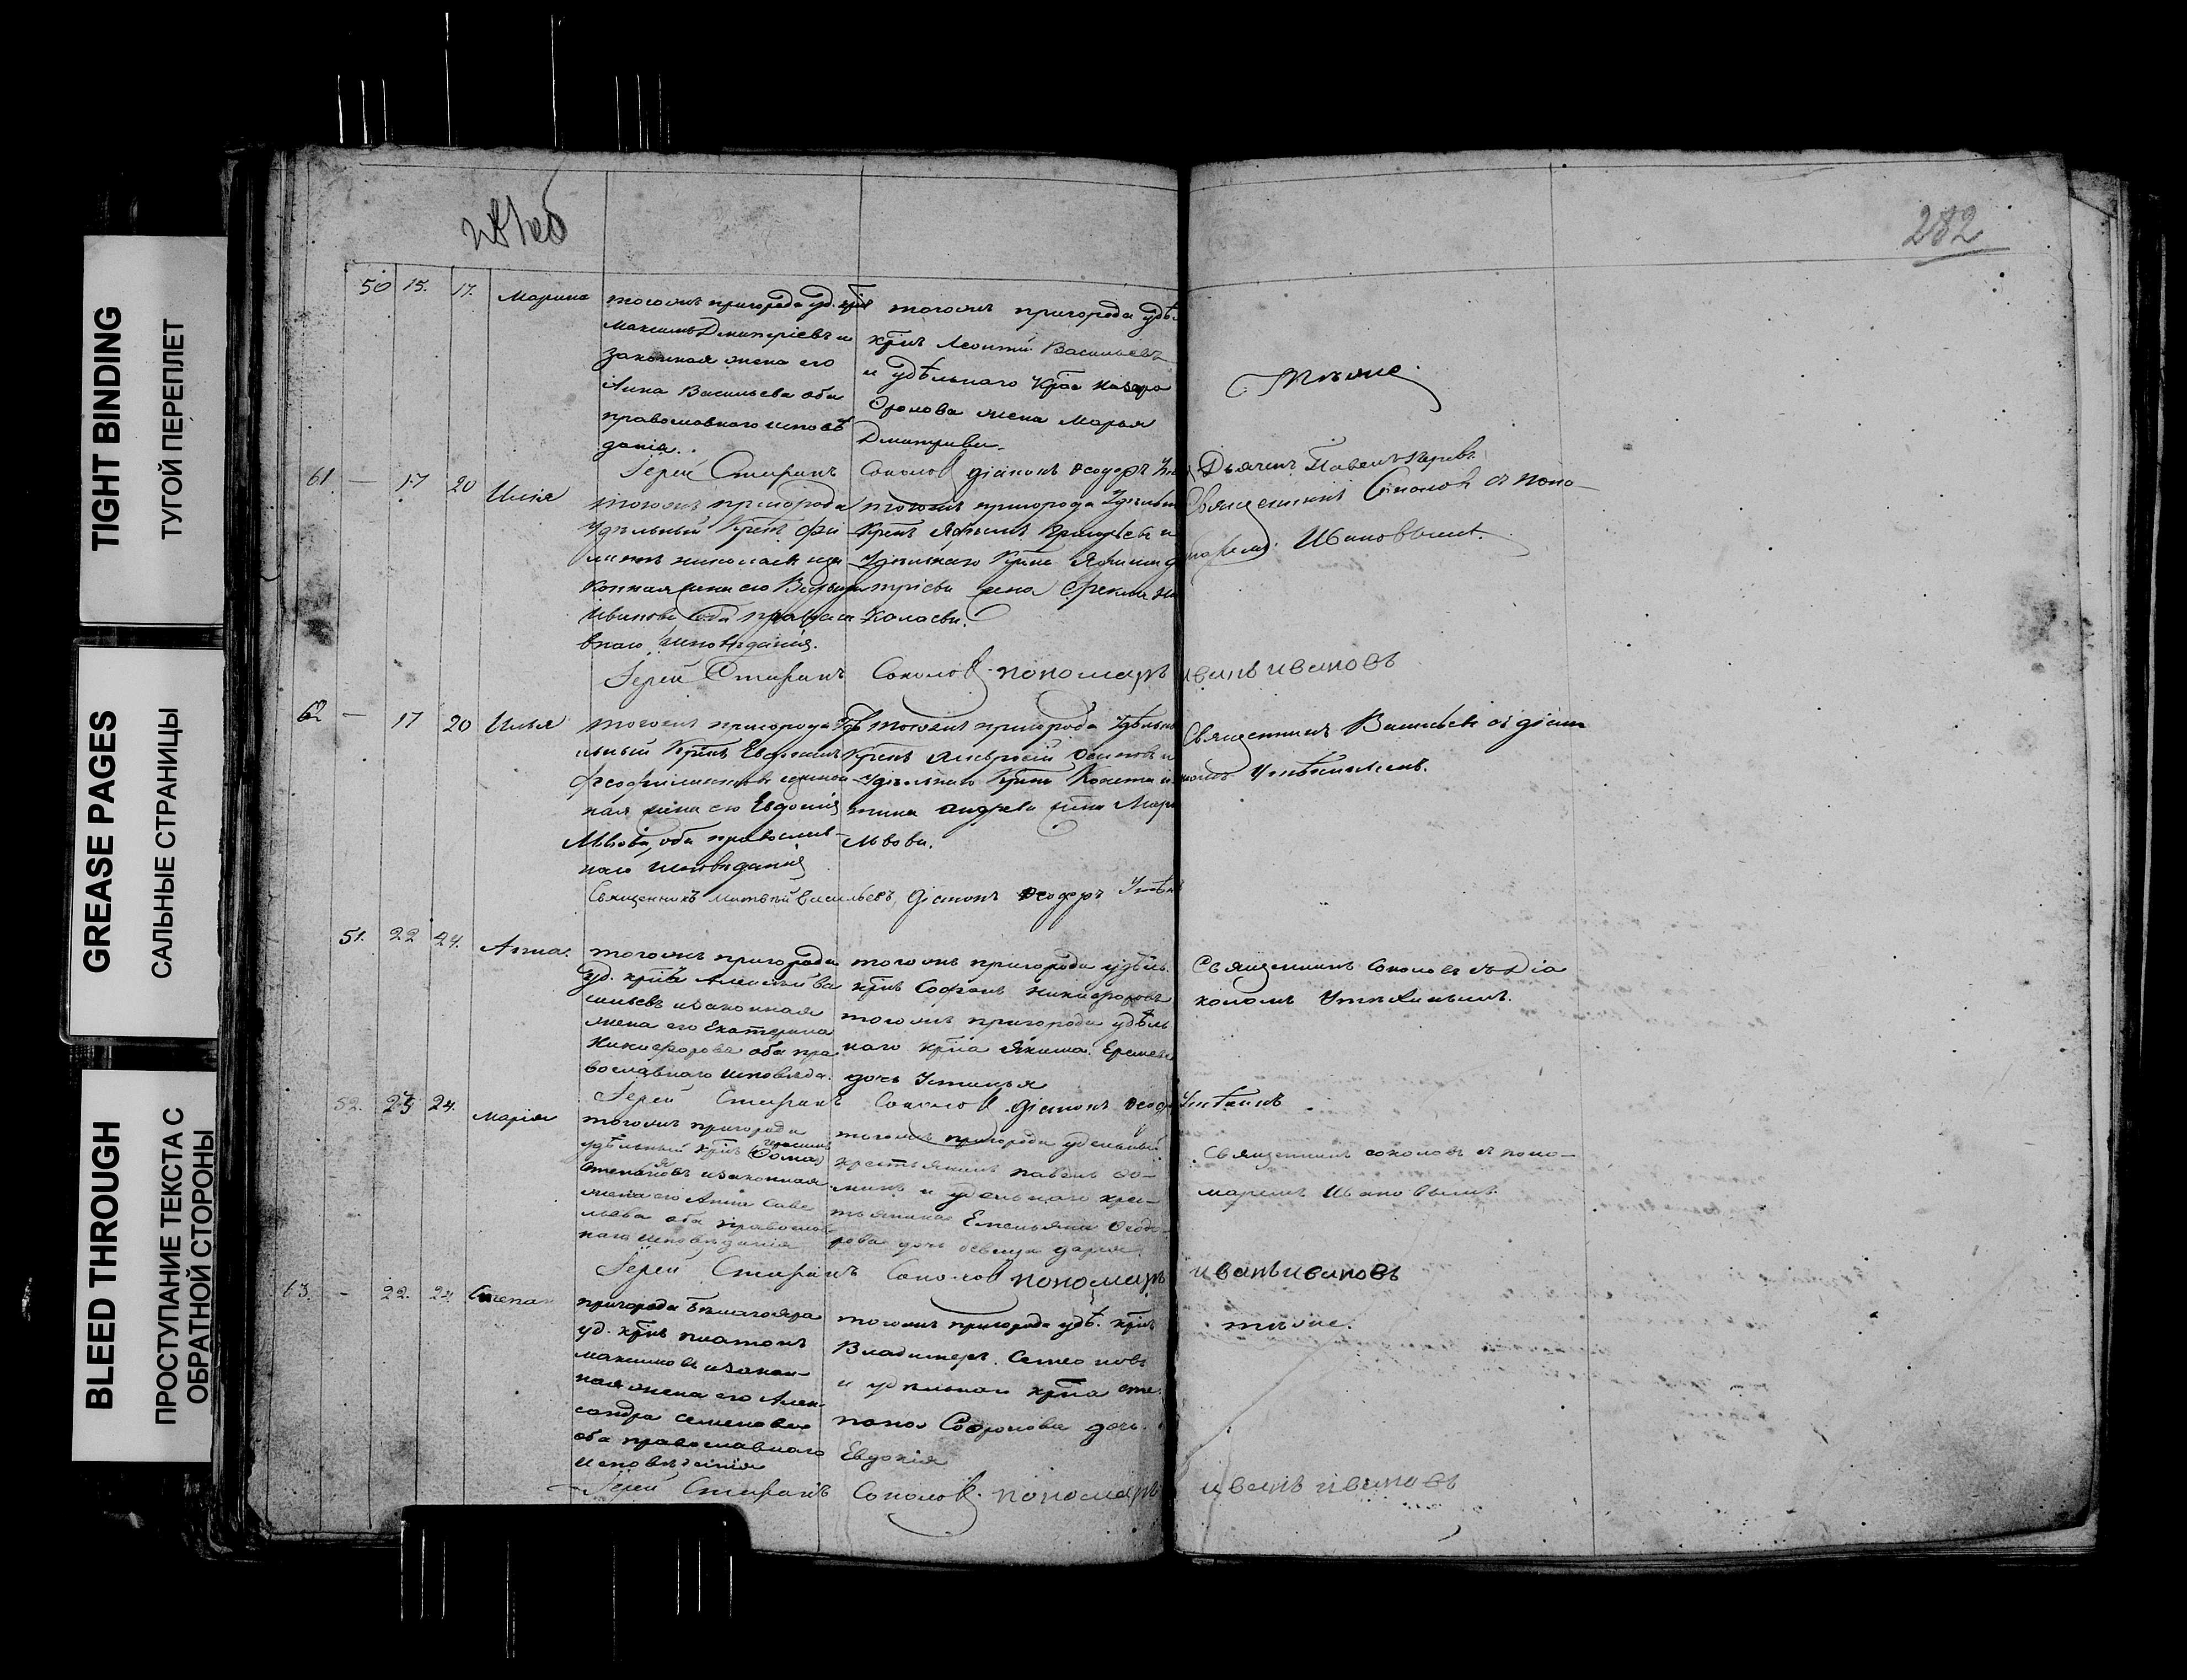 TIGHT BINDING
ТУГОЙ ПЕРЕПЛЕТ
GREASE PAGES
САЛЬНЫЕ СТРАНИЦЫ
BLEED THROUGH
ПРОСТУПАНИЕ ТЕКСТА С
ОБРАТНОЙ СТОРОНЫ
282
50 15. 17. Марина
тогожъ пригорода уд.
Максимъ Дмитріевъ и
законная жена его
Анна Васильева оба
православнаго исповѣ
данія.
тогожъ пригорода удѣ.
Леонтій Васильевъ
и удѣльнаго Назара
жена Марья
Дмитріева.
Тѣже.
Іерей Стефанъ Соколовъ діаконъ Ѳеодоръ Дьячекъ Павелъ
61. — 17 20 Илія
тогожъ пригорода
Удѣльный Крнъ Фи
липпъ Николаевъ и за
конная жена его
Иванова оба правосла
внаго исповѣданія.
тогожъ пригорода
Крнъ и
Удѣльнаго
тріева жена Фекла Ни
колаева.
Священникъ Соколовъ съ поно-
маремъ Ивановымъ.
Іерей Стефанъ Соколовъ пономарь Иванъ Ивановъ
62 — 17 20 Илья
тогожъ пригорода Удѣ
льный Крнъ
закон
ная жена его Евдокія
Львова, оба православ-
наго исповѣданія
тогожъ пригорода Удѣльный
Крнъ Амвросій Осиповъ и
Удѣльнаго Конста
тина Андреева жена Марья
Львова.
Священникъ Васильевъ съ діако
номъ Утѣхинымъ.
Священникъ Матвѣй Васильевъ, Діаконъ Ѳеодоръ Утѣхинъ
51. 22 24. Анна.
тогожъ пригорода
уд. Алексѣй Ва
сильевъ и законная
жена его Екатерина
Никифорова оба пра
вославнаго исповѣда.
тогожъ пригорода удѣль.
Софронъ Никифоровъ
тогожъ пригорода удѣль
наго Якима
дочь Устинья
Священникъ Соколовъ съ Діа
кономъ Утѣхинымъ.
Іерей Стефанъ Соколовъ діаконъ Ѳеодоръ Утѣхинъ
52. 23 24. Марія
тогожъ пригорода
удѣльный
Степановъ и законная
жена его Анна Саве
льева оба православ
наго исповѣданія
тогожъ пригорода удельный
крестьянинъ Павелъ Ѳо-
минъ и удельнаго крес-
тьянина Емельяна Ѳеодо-
рова дочь девица Дарья
Священникъ Соколовъ съ поно-
маремъ Ивановымъ.
Іерей Стефанъ Соколовъ пономарь Иванъ Ивановъ
63. - 22. 24. Степанъ
пригорода Бѣлаго Яра
уд. Платонъ
Максимовъ и закон-
ная жена его Алек
сандра Семенова
оба православнаго
исповѣданія
тогожъ пригорода удѣ.
Владимеръ. Семеновъ
и удѣльнаго Сте.
пана Софронова дочь.
Евдокія
тѣже.
Іерей Стефанъ Соколовъ. пономарь Иванъ Ивановъ